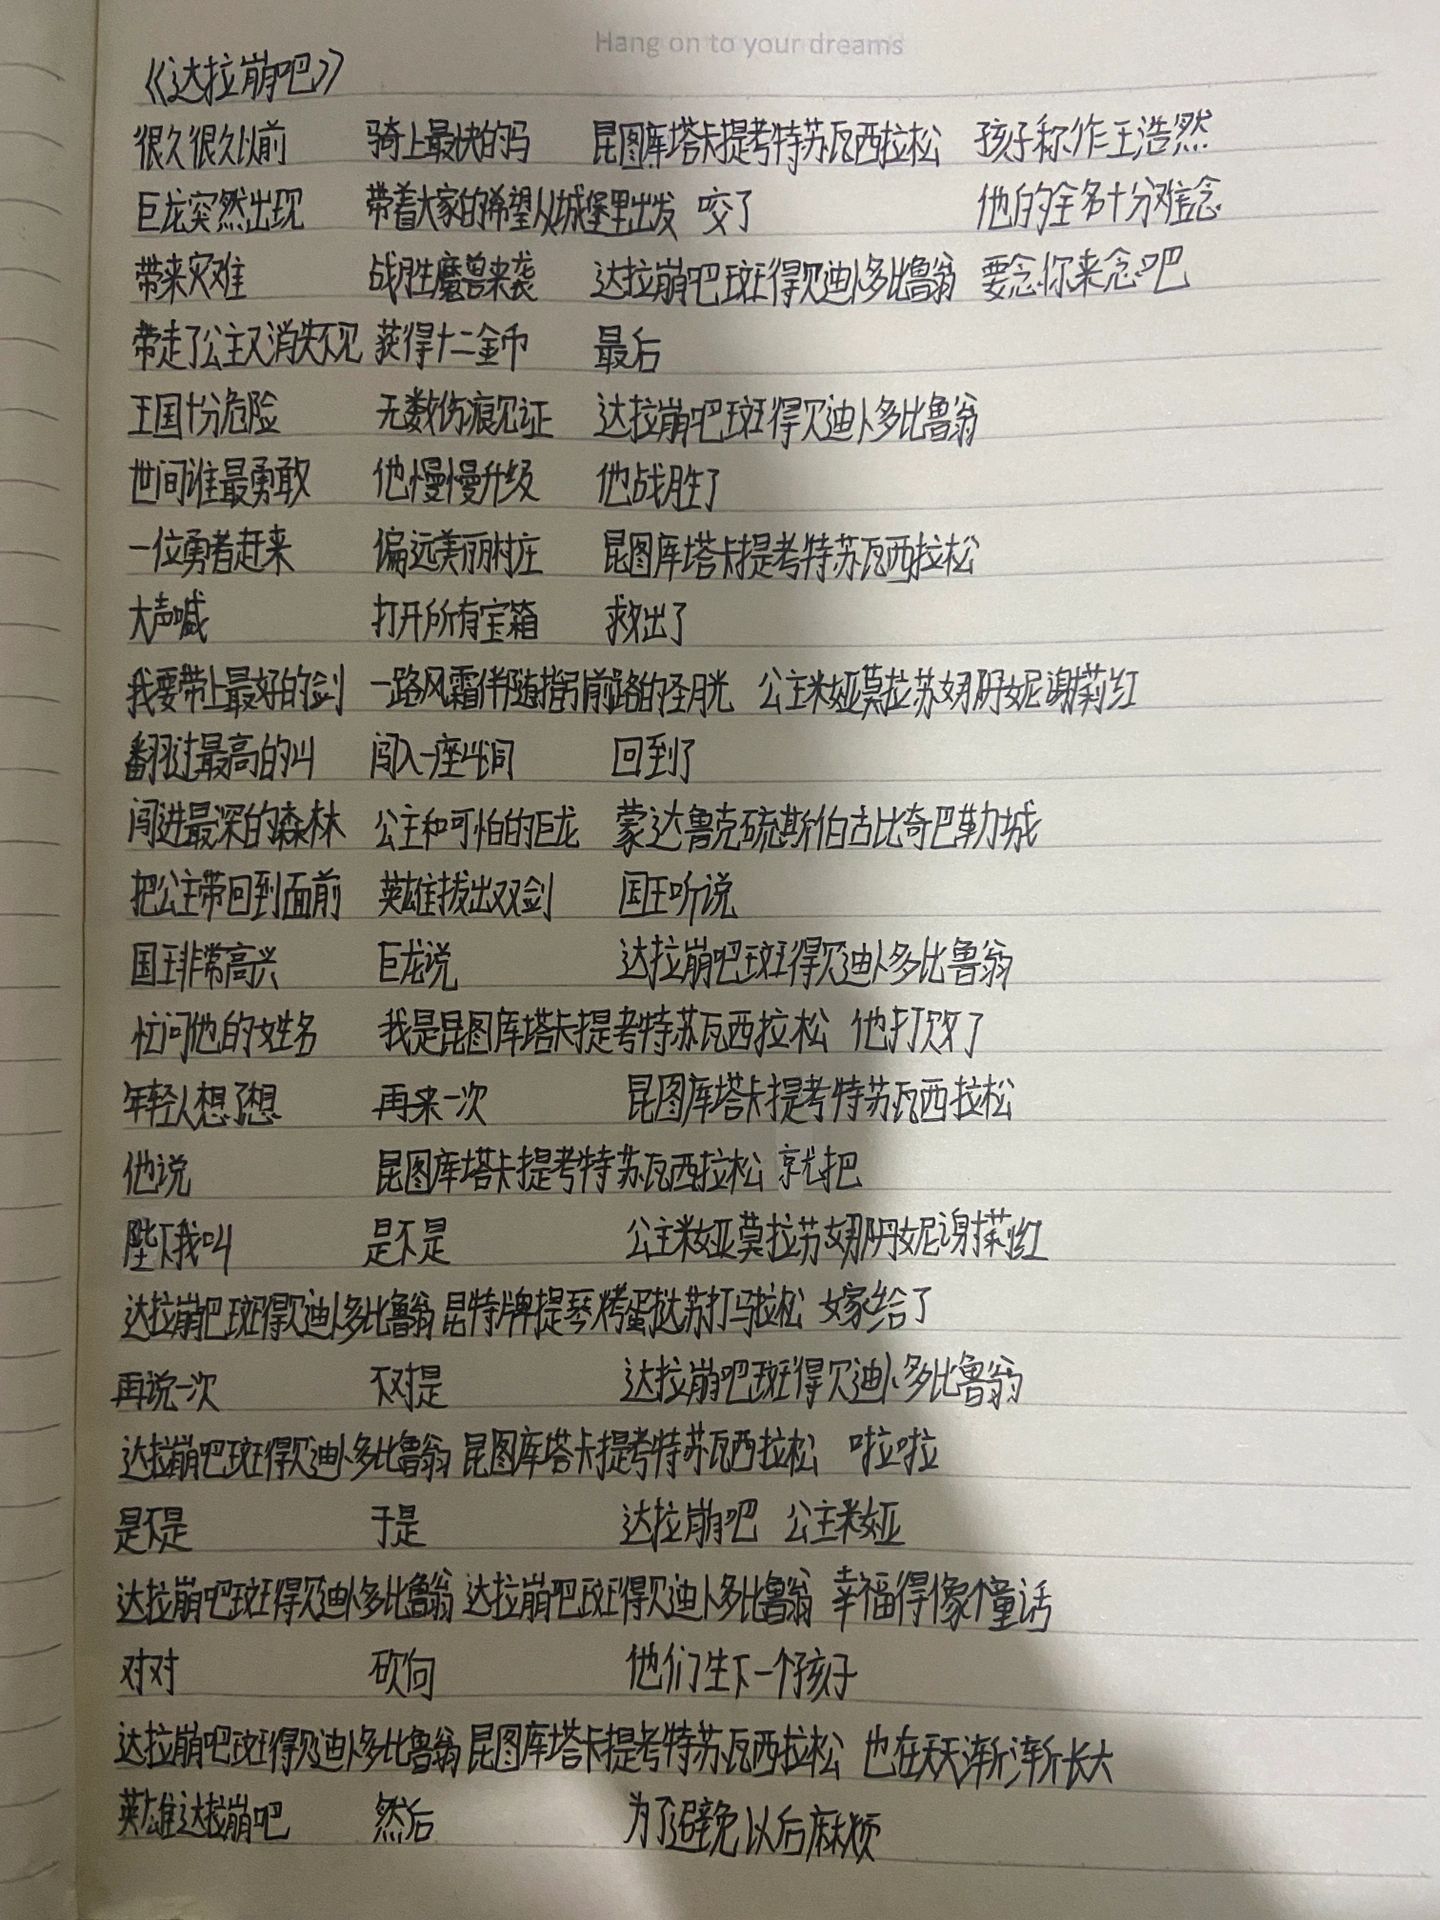 Hang on to your dreams
《达拉崩吧》
很久很久以前
巨龙突然出现
带来灾难
带走了公主又消失不见
王国十分危险
世间谁最勇敢
一位勇者赶来
大声喊
我要带上最好的剑
翻过最高的山
闯进最深的森林
把公主带回到面前
国王非常高兴
忙问他的姓名
年轻人想了想
他说
陛下我叫
达拉崩吧斑得贝迪卜多比鲁翁
再说一次
达拉崩吧斑得贝迪卜多比鲁翁
是不是
达拉崩吧斑得贝迪卜多比鲁翁
对对
达拉崩吧斑得贝迪卜多比鲁翁
英雄达拉崩吧
骑上最快的马
带着大家的希望从城堡里出发
战胜魔兽来袭
获得十二金币
无数伤痕见证
他慢慢升级
偏远美丽村庄
打开所有宝箱
一路风霜伴随指引前路的圣月光
闯入一座山洞
公主和可怕的巨龙
英雄拔出双剑
巨龙说
我是昆图库塔卡提考特苏瓦西拉松
再来一次
昆图库塔卡提考特苏瓦西拉松
是不是
昆特牌提琴烤蛋挞苏打马拉松
不对是
昆图库塔卡提考特苏瓦西拉松
于是
达拉崩吧斑得贝迪卜多比鲁翁
砍向
昆图库塔卡提考特苏瓦西拉松
然后
昆图库塔卡提考特苏瓦西拉松
咬了
达拉崩吧斑得贝迪卜多比鲁翁
最后
达拉崩吧斑得贝迪卜多比鲁翁
他战胜了
昆图库塔卡提考特苏瓦西拉松
救出了
公主米娅莫拉苏娜丹妮谢莉红
回到了
蒙达鲁克硫斯伯古比奇巴勒城
国王听说
达拉崩吧斑得贝迪卜多比鲁翁
他打败了
昆图库塔卡提考特苏瓦西拉松
就把
公主米娅莫拉苏娜丹妮谢莉红
嫁给了
达拉崩吧斑得贝迪卜多比鲁翁
啦啦
达拉崩吧 公主米娅
幸福得像个童话
他们生下一个孩子
也在天天渐渐长大
为了避免以后麻烦
孩子称作王浩然
他的全名十分难念
要念你来念吧